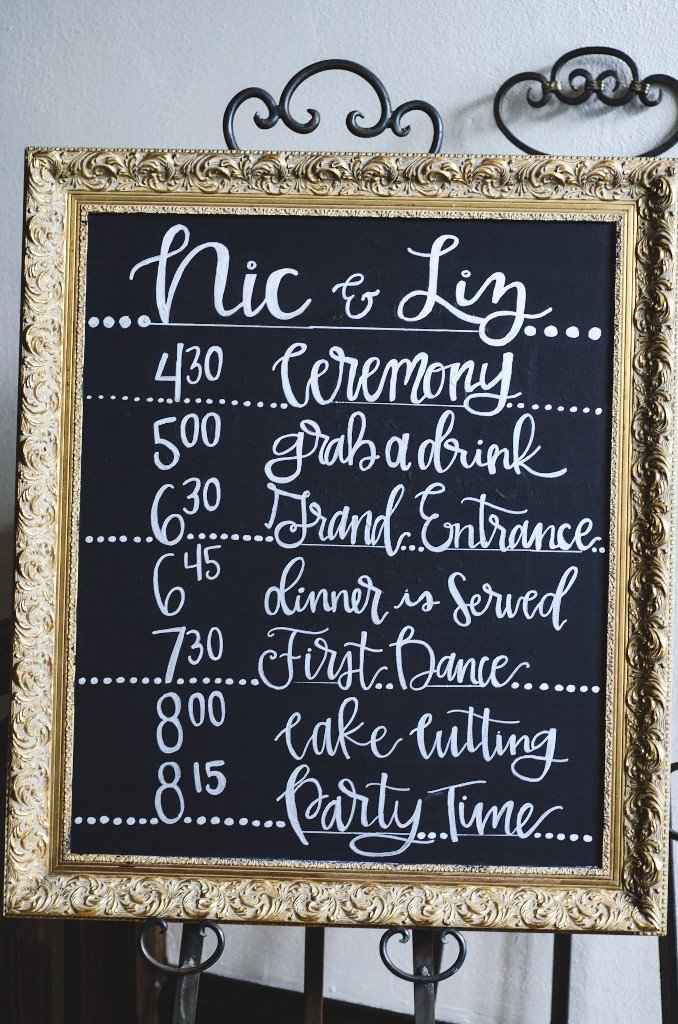 Nic & Liz
4 30 Ceremony
5 00 grab a drink
6 30 Grand Entrance
6 45 dinner is Served
7 30 First Dance
8 00 cake cutting
8 15 Party Time